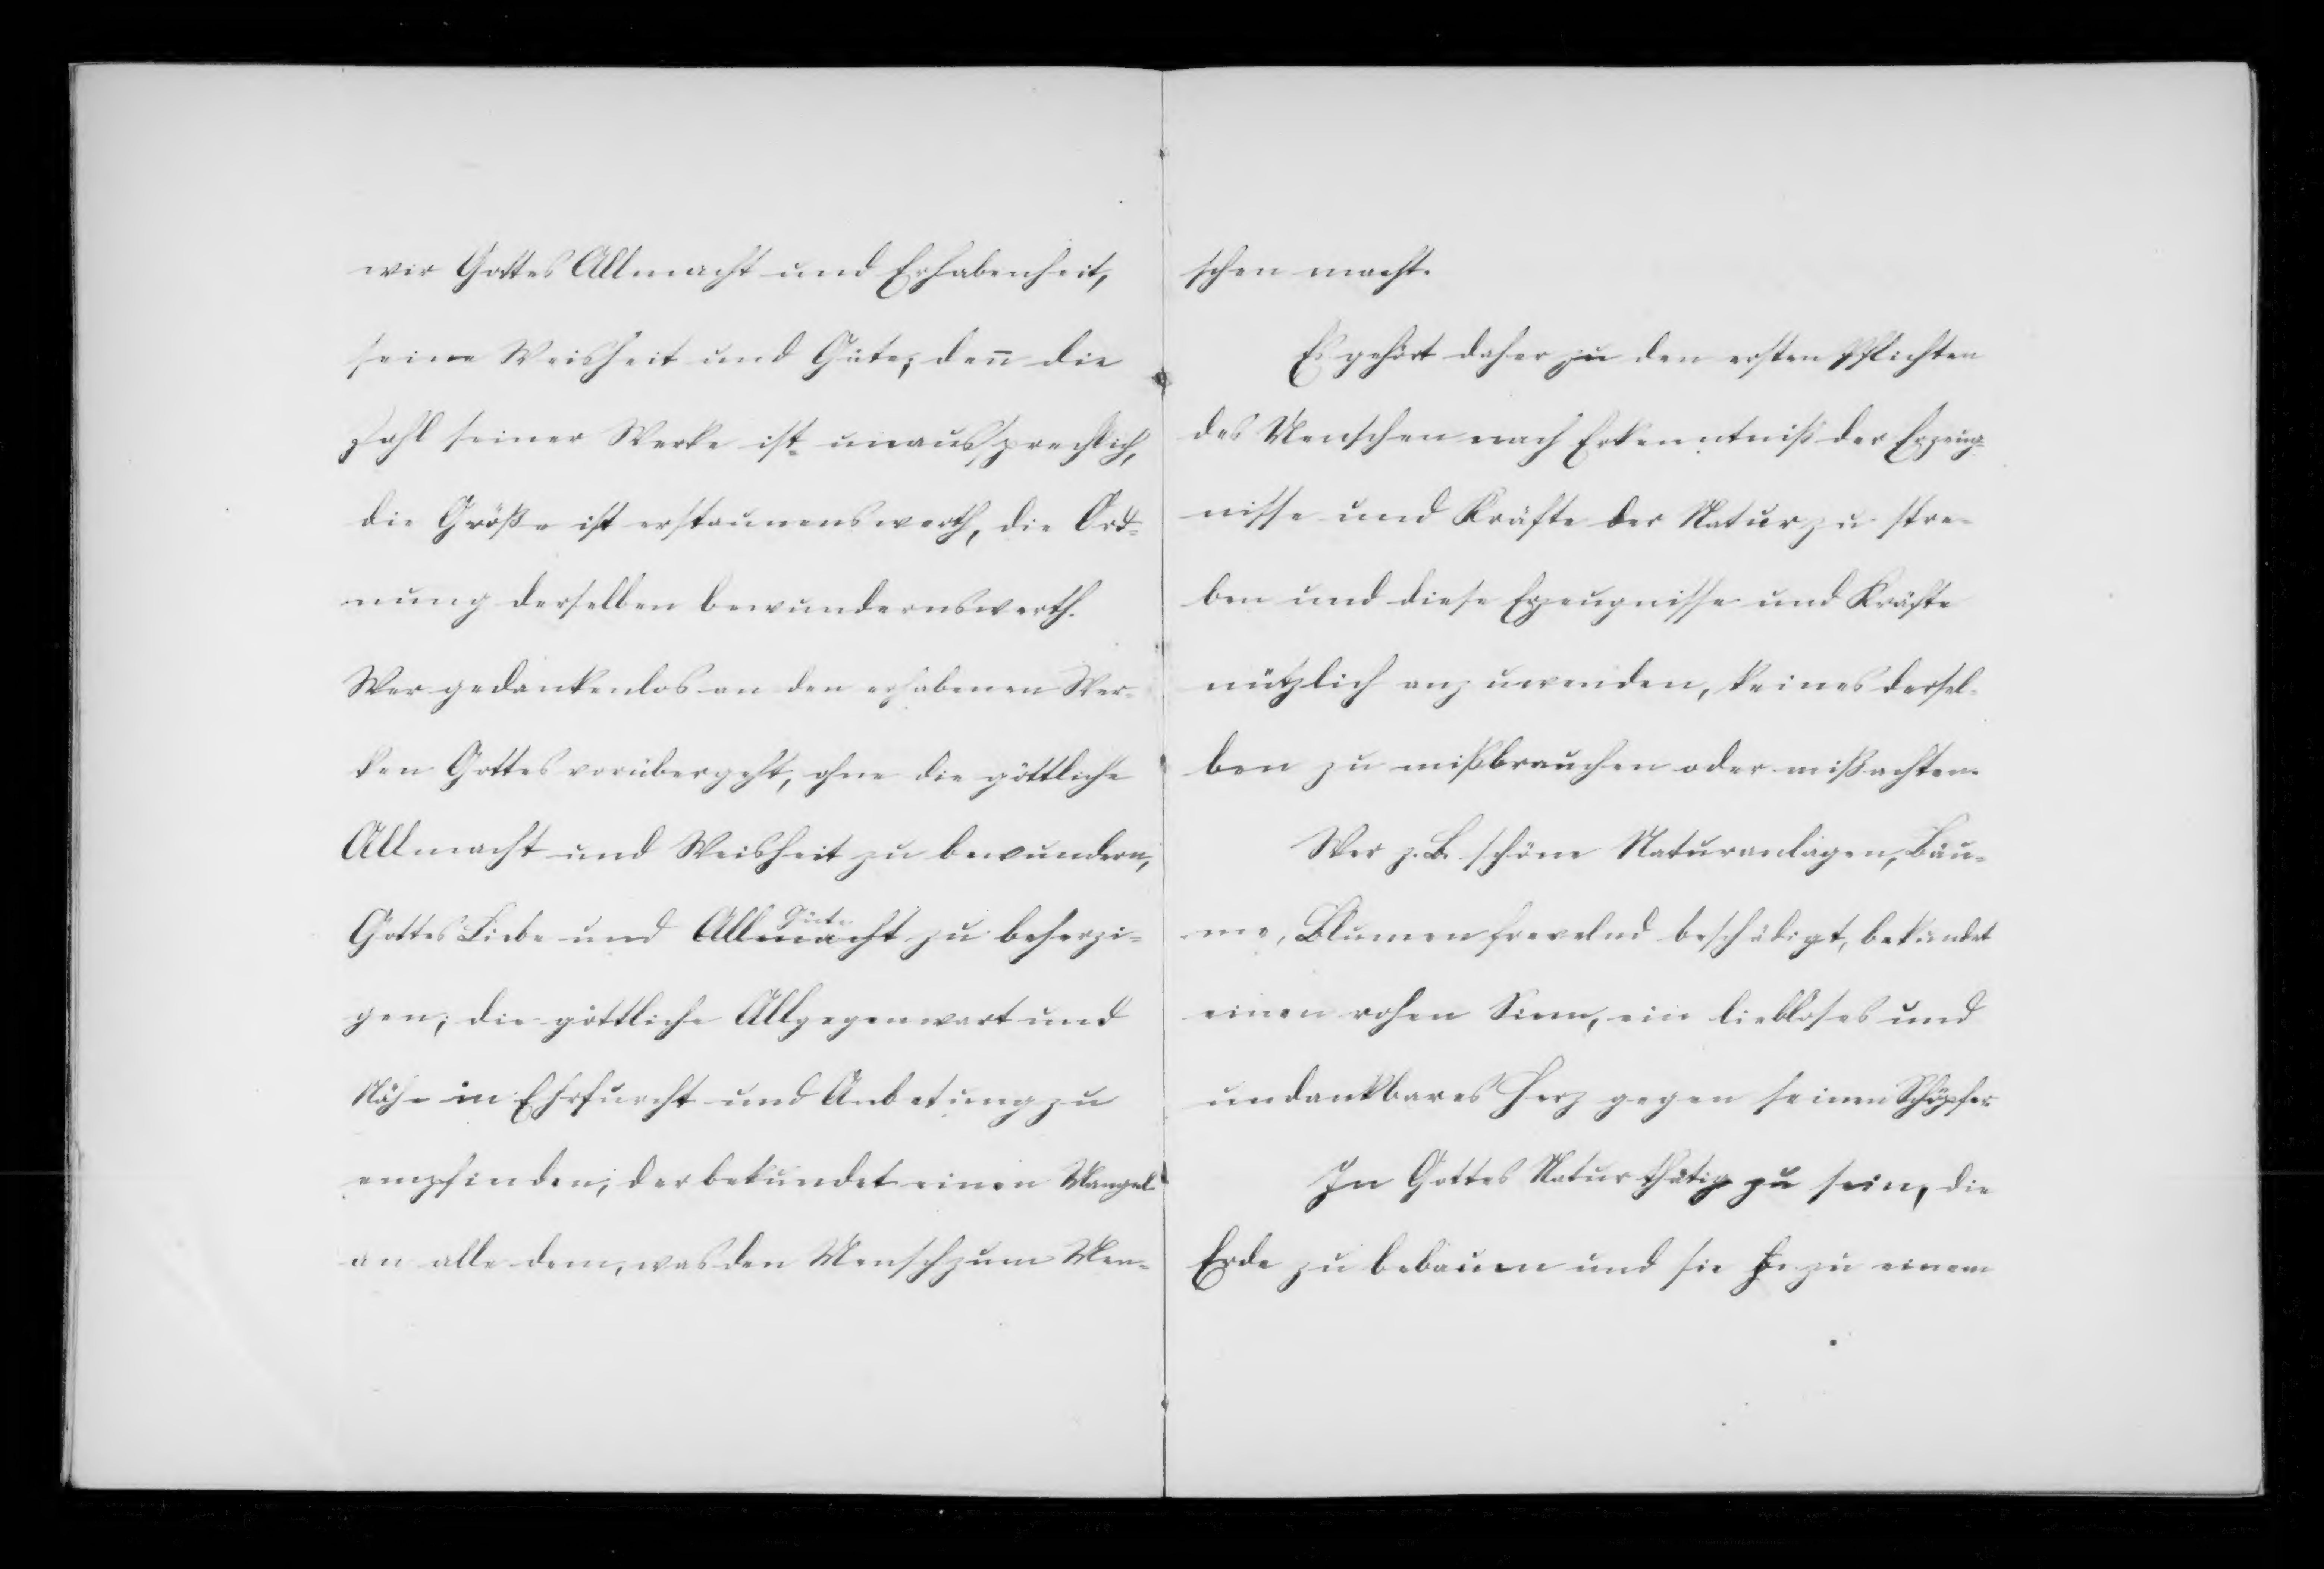 wir Gottes Allmacht und Erhabenheit,
seine Weisheit und Güte; den̄ die
Zahl seiner Werke ist unaussprechlich,
die Größe ist erstaunenswerth, die Ord-
nung derselben bewundernswerth.
Wer gedankenlos an den erhabenen Wer-
ken Gottes vorübergeht, ohne die göttliche
Allmacht und Weisheit zu bewundern,
Güte
Gottes Liebe und Allmacht zu beherzi-
gen; die göttliche Allgegenwart und
Nähe in Ehrfurcht und Anbetung zu
empfinden, der bekundet einen Mangel
an alle dem, was den Mensch zum Men-
schen macht.
Es gehört daher zu den ersten Pflichten
des Menschen nach Erkenntniß der Erzeug-
nisse und Kräfte der Natur zu stre-
ben und diese Erzeugnisse und Kräfte
nützlich anzuwenden, keines dersel-
ben zu mißbrauchen oder mißachten.
Wer z. B. schöne Naturanlagen, Bäu-
me, Blumen frevelnd beschädigt, bekundet
einen rohen Sinn, ein liebloses und
undankbares Herz gegen seinen Schöpfer.
In Gottes Natur thätig zu sein, die
Erde zu bebauen und sie zu einem